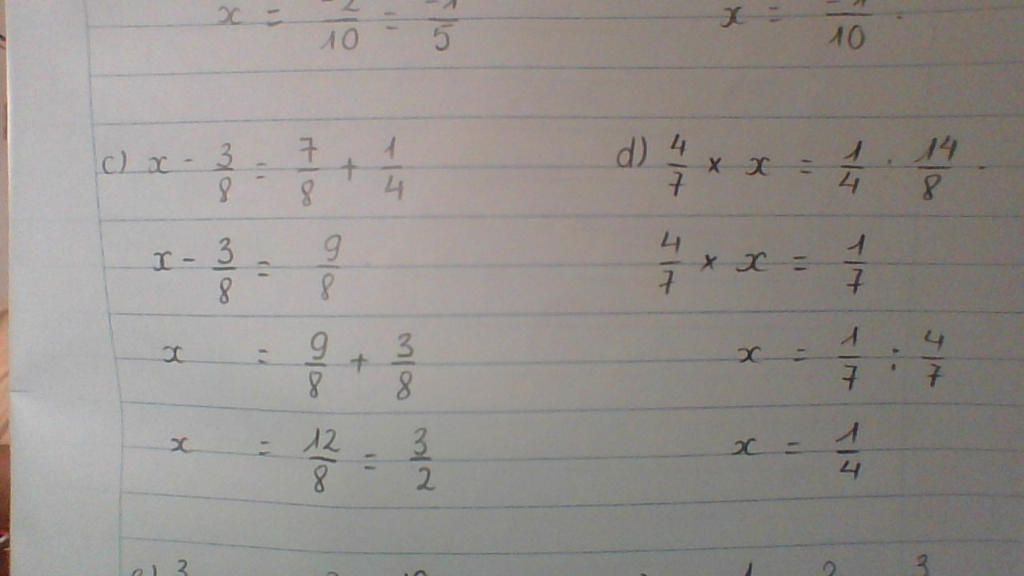 x = -2/10 = -1/5
x = -1/10 .
c) x - 3/8 = 7/8 + 1/4
x - 3/8 = 9/8
x = 9/8 + 3/8
x = 12/8 = 3/2
d) 4/7 × x = 1/4 . 14/8 .
4/7 × x = 1/7
x = 1/7 : 4/7
x = 1/4